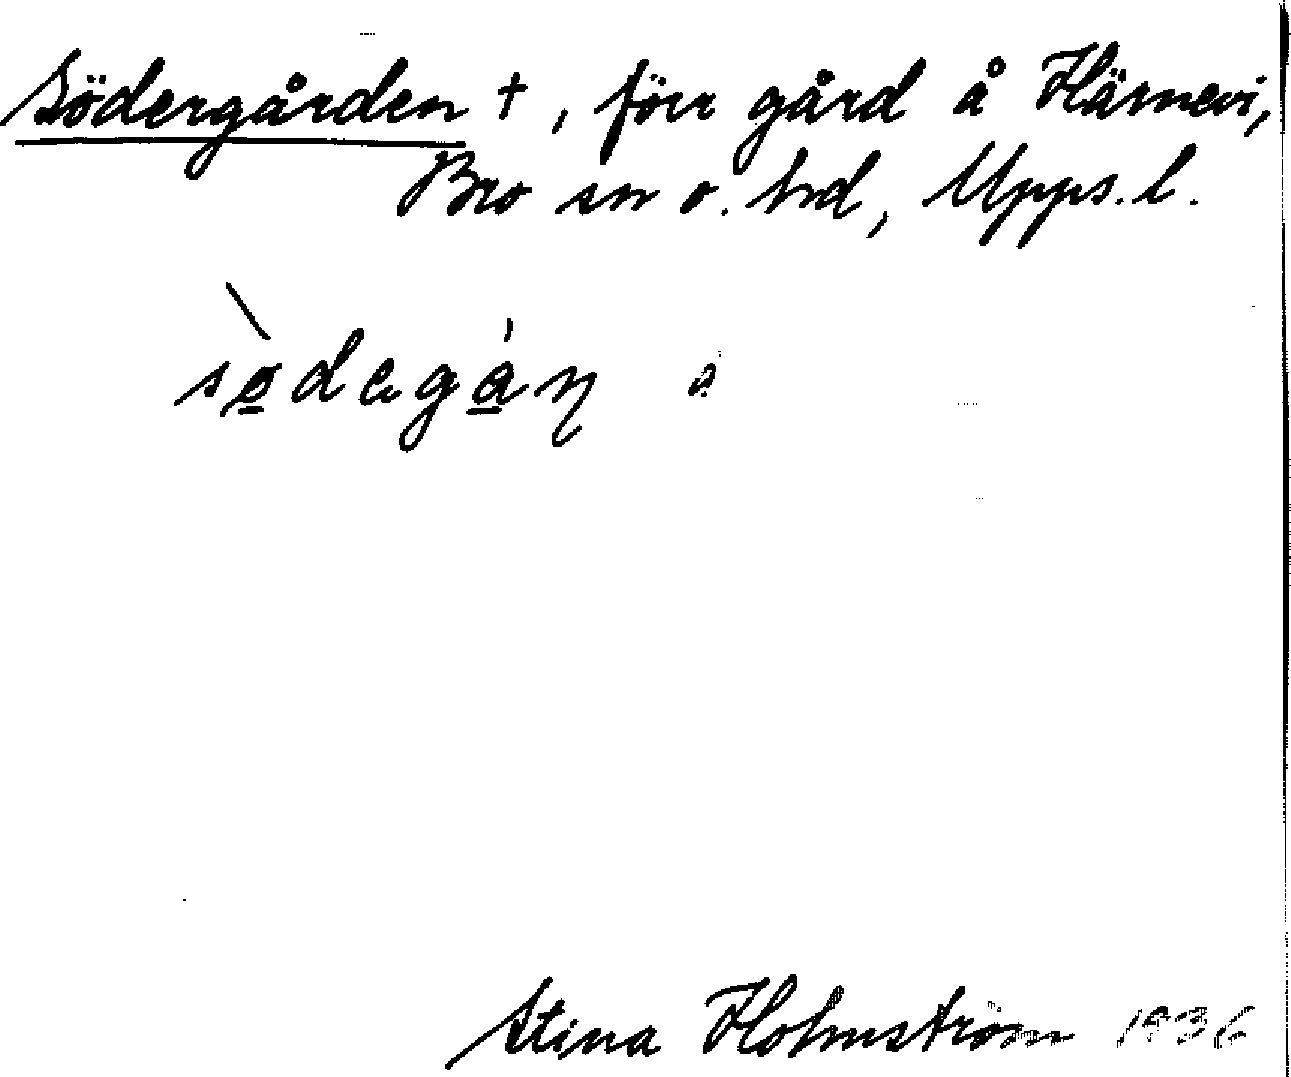 Södergården †, förr gård å Härnevi,
Bro sn o. hd, Upps. l.
Stina Holmström 1936